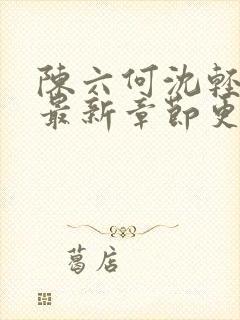 陳六何沈輕
最新章節更
葛店